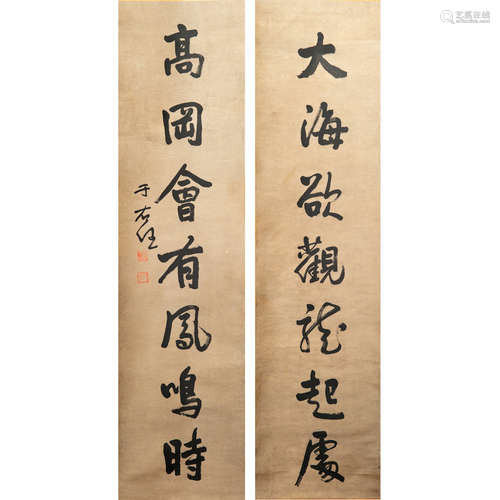 大海欲觀龍起處
高岡會有鳳鳴時
于右任